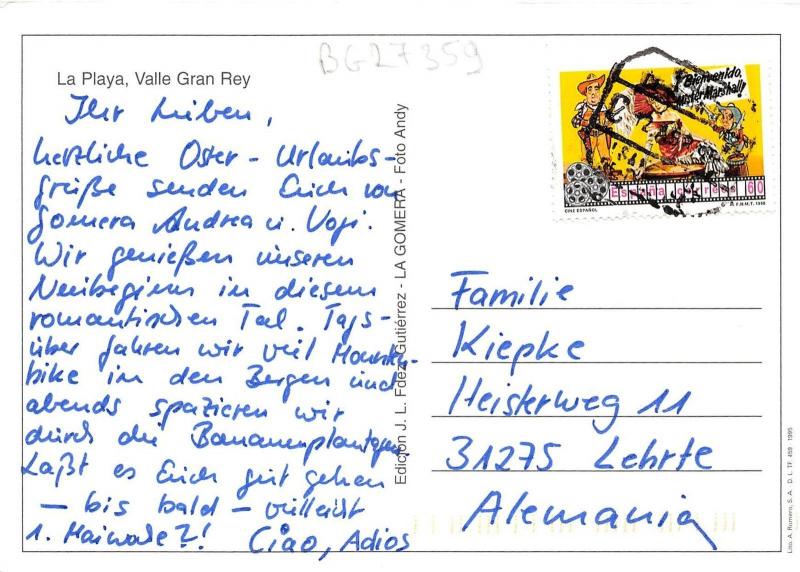 BG27359
La Playa, Valle Gran Rey
Ihr Lieben,
herzliche Oster-Urlaubs-
grüße senden Euch von
Gomera Andrea u.
Wir genießen unseren
Neubeginn in diesem
romantischen Tal. Tags-
über fahren wir viel Mountain-
bike in den Bergen und
abends spazieren wir
durch die Bananenplantagen.
Laßt es Euch gut gehen
- bis bald - vielleicht
1. Maiwoche?! Ciao, Adios
Edición J. L. Fdez. Gutiérrez - LA GOMERA - Foto Andy
¡Bienvenido,
Míster Marshall!
España correos 60
CINE ESPAÑOL
F.N.M.T. 1996
Familie
Kiepke
Heisterweg 11
31275 Lehrte
Alemania
Lito. A. Romero, S. A. D. L. TF. 459 1995